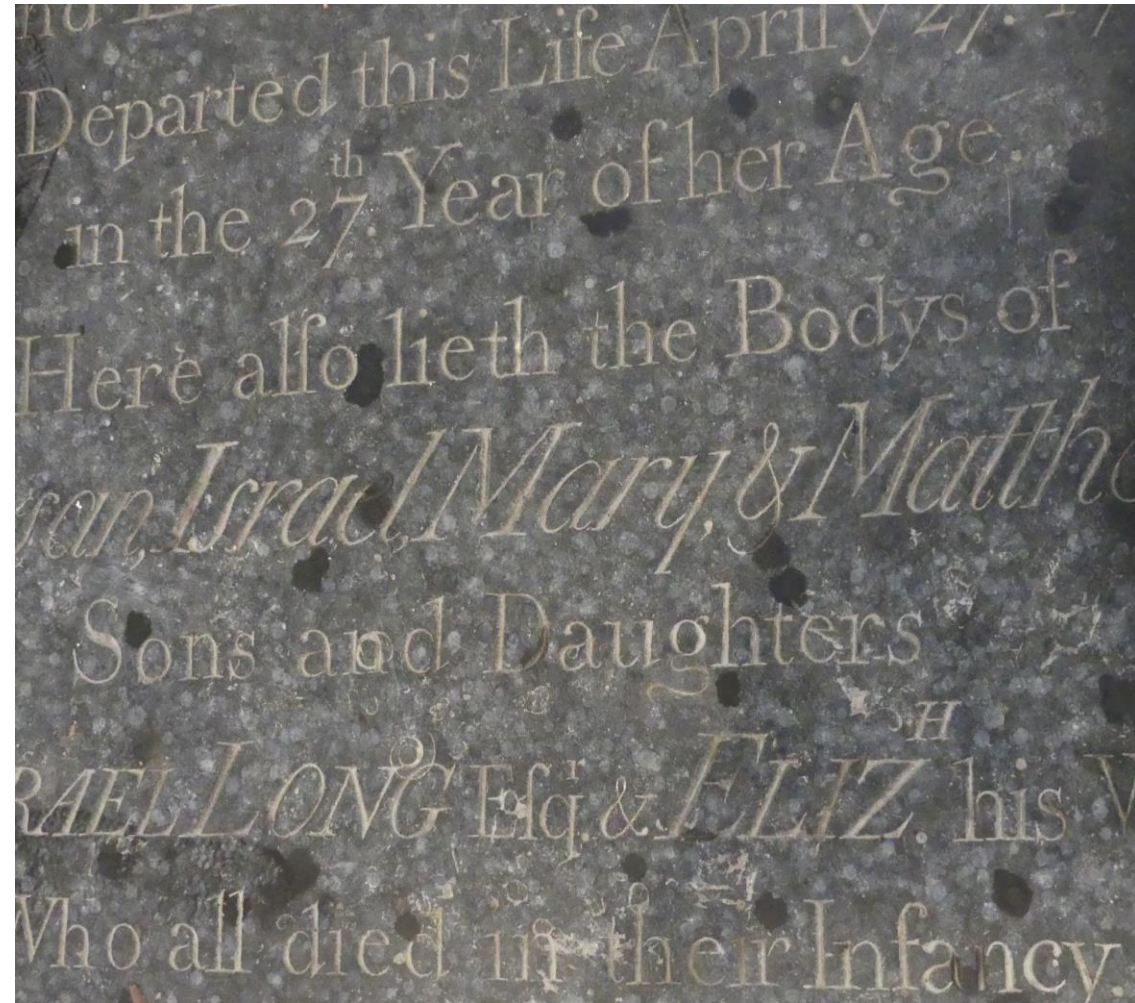 Departed this Life Aprily 27
in the 27th Year of her Age
Here alſo lieth the Bodys of
Israel, Mary, &
Sons and Daughters
LONG Eſqr & ELIZH his
Who all died in their Infancy